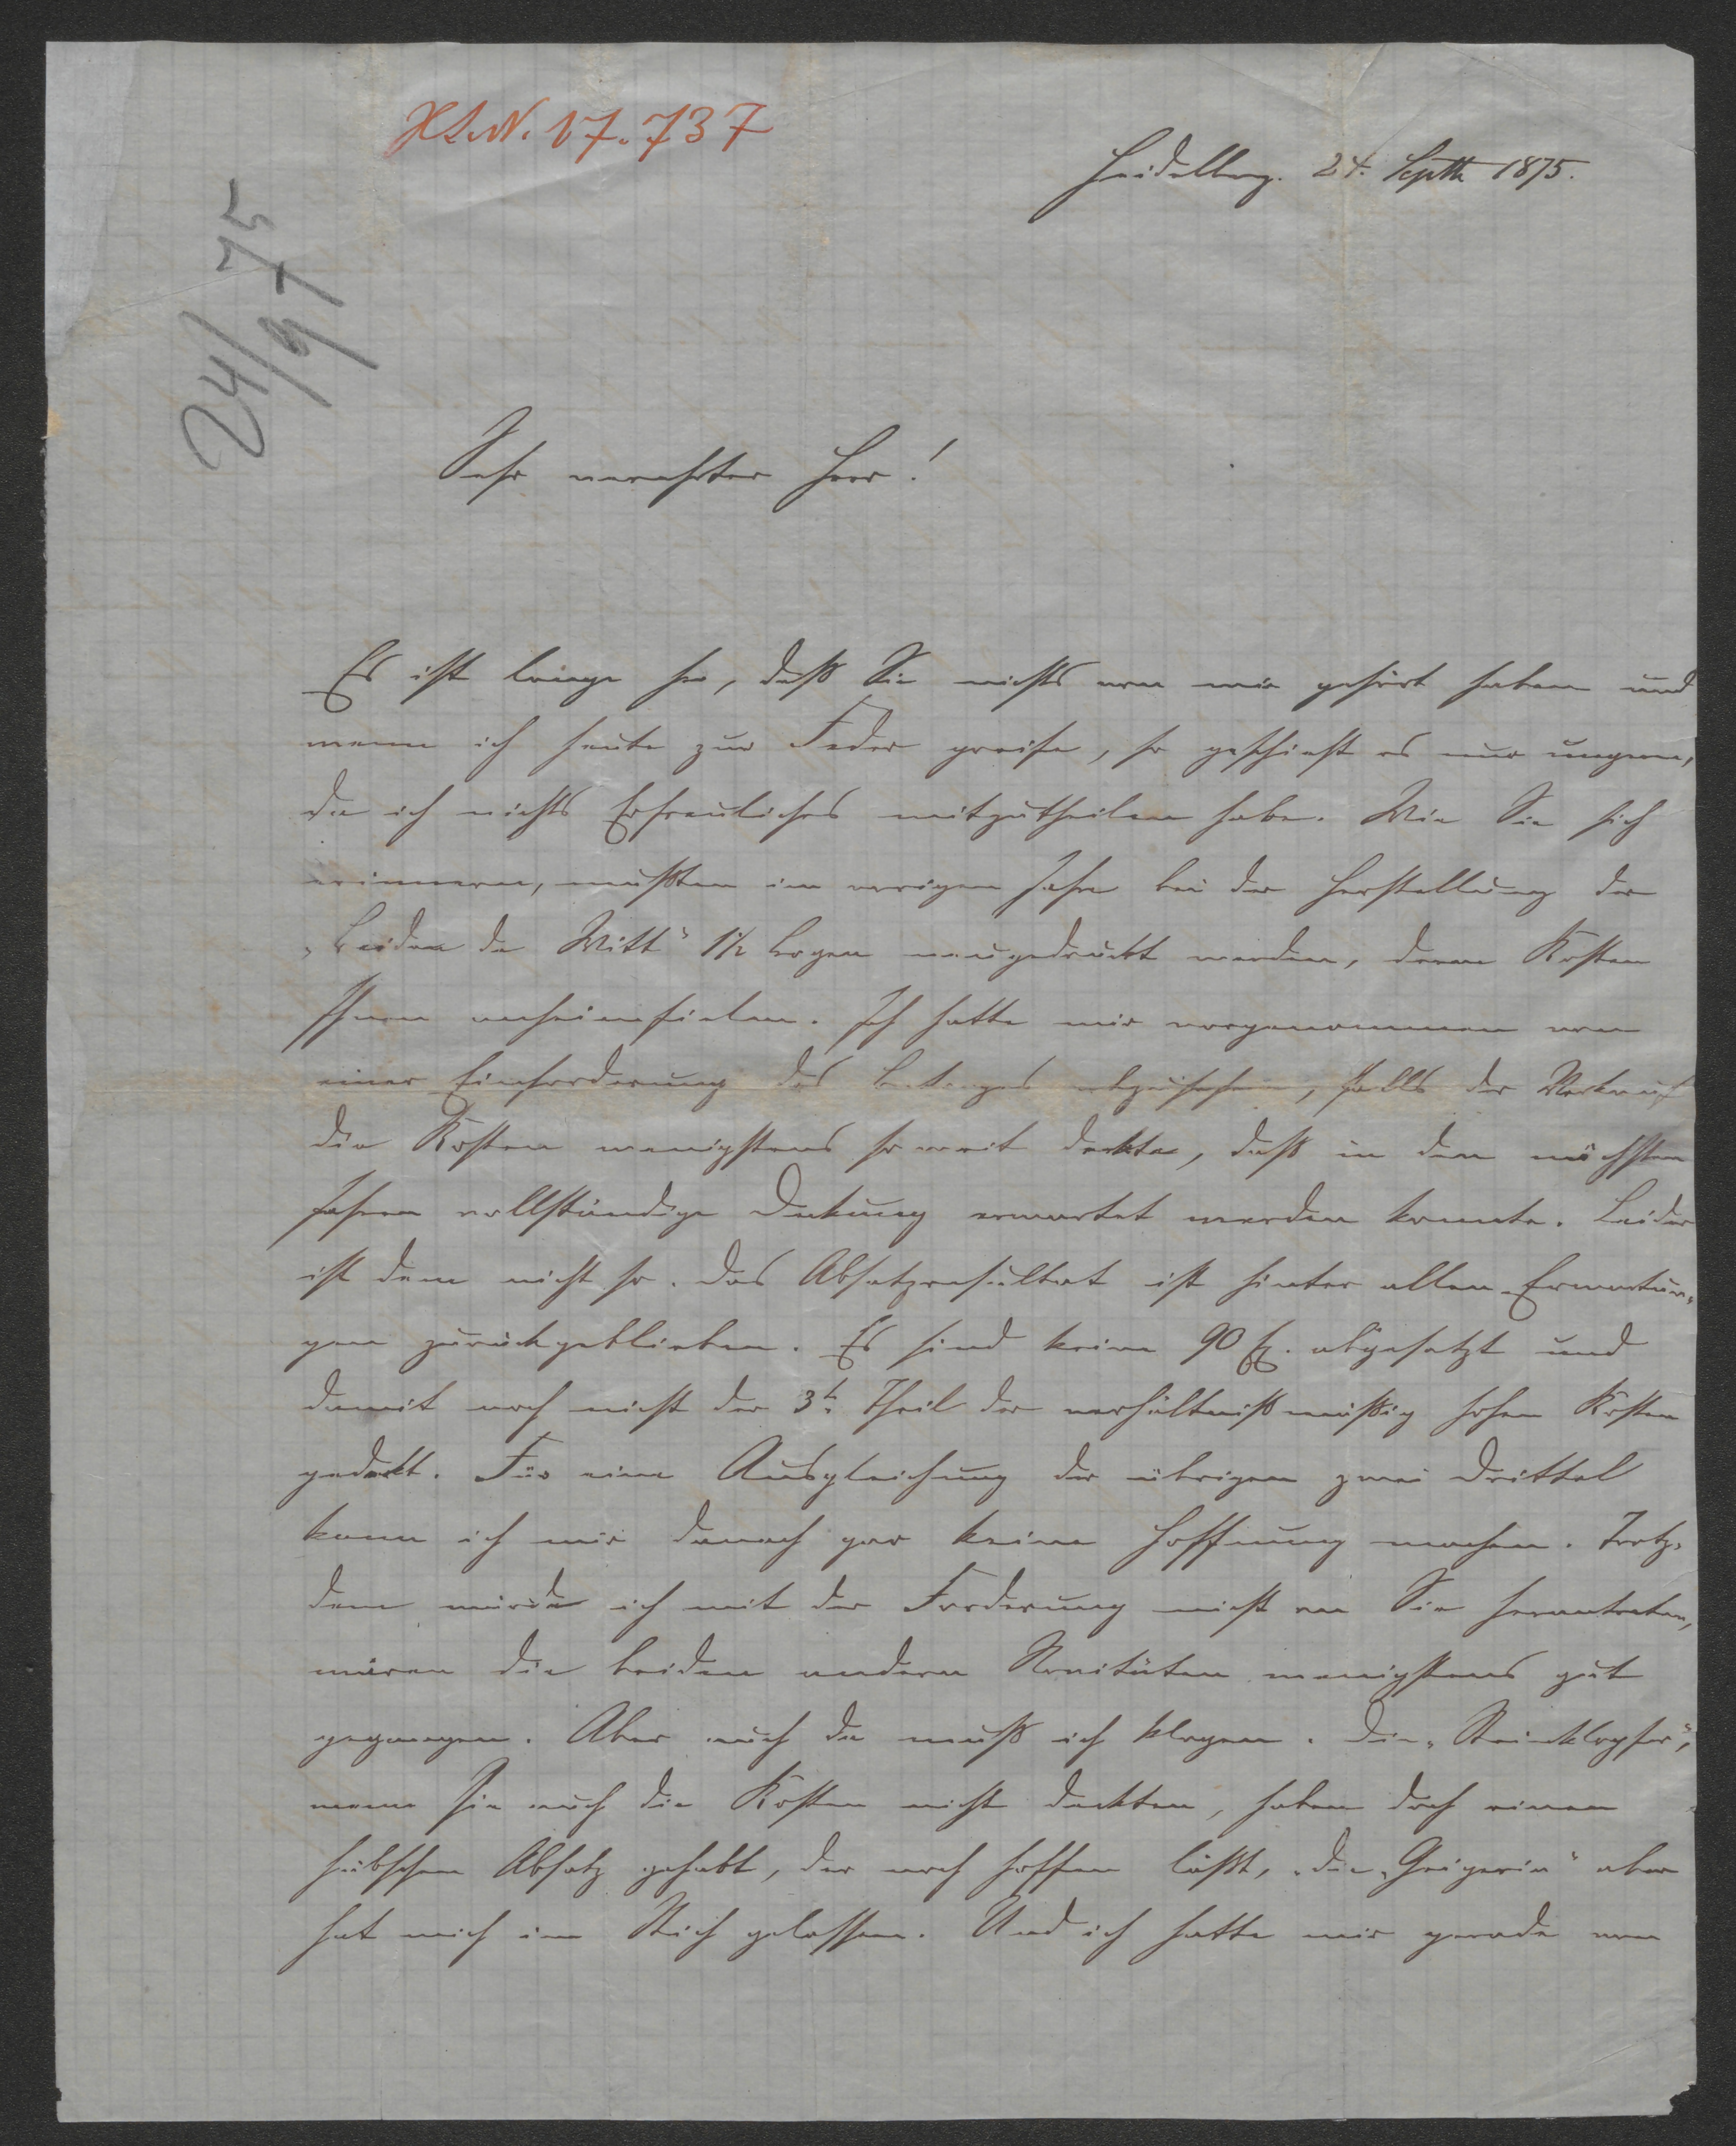 H.I.N. 17.737
Heidelberg. 24. Septbr 1875.
24/9 75
Sehr verehrter Herr!
Es ist lange her, daß Sie nichts von mir gehört haben und
wenn ich heute zur Feder greife, so geschieht es nur ungern,
da ich nichts Erfreuliches mitzutheilen habe. Wie Sie sich
erinnern, mußten im vorigen Jahre bei der Herstellung der
„Beiden de Witt“ 1½ Bogen neugedruckt werden, deren Kosten
Ihnen anheimfielen. Ich hatte mir vorgenommen von
einer Einforderung des Betrages abzusehen, falls der Verkauf
die Kosten wenigstens so weit deckte, daß in den nächsten
Jahren vollständige Deckung erwartet werden konnte. Leider
ist dem nicht so. Das Absatzresultat ist hinter allen Erwartun-
gen zurückgeblieben. Es sind keine 90 Ex. abgesetzt und
damit noch nicht der 3te Theil der verhältnißmäßig hohen Kosten
gedeckt. Für eine Ausgleichung der übrigen zwei Drittel
kann ich mir danach gar keine Hoffnung machen. Trotz-
dem würde ich mit der Forderung nicht an Sie herantreten,
wären die beiden andern Novitäten wenigstens gut
gegangen. Aber auch da muß ich klagen. Die „Steinklopfer“,
wenn sie auch die Kosten nicht deckten, haben doch einen
hübschen Absatz gehabt, der noch hoffen läßt, die „Geigerin“ aber
hat mich im Stich gelassen. Und ich hatte mir gerade von